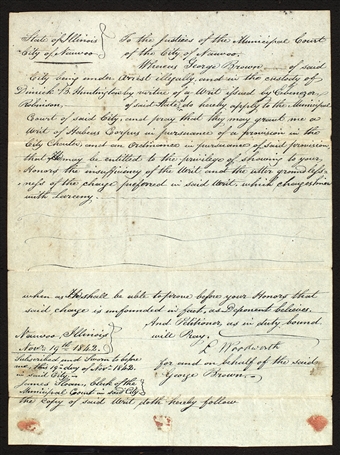 State of Illinois } To the Justices of the Municipal Court
City of Nauvoo } of the City of Nauvoo.
Whereas George Brown of said
City being under Arrest illegally, and in the custody of
Dimick B. Huntington by virtue of a Writ issued by Ebenezer
Robinson, of said State, do hereby apply to the Municipal
Court of said City, and pray that they may grant me a
Writ of Habeas Corpus in pursuance of a provision in the
City Charter, and an Ordinance in pursuance of said provision,
that He may be entitled to the privilege of showing to your
Honors the insufficiency of the Writ and the utter groundless-
ness of the charge preferred in said Writ, which charges him
with Larceny.
when as He shall be able to prove before your Honors that
said charge is unfounded in fact, as Deponent believes.
And Petitioner, as in duty bound
will Pray,
Nauvoo, Illinois }
Nov. 19th 1842. }
L. Woodworth
for and on behalf of the said
George Brown.
Subscribed and Sworn to before
me, this 19th day of Nov. 1842.
in said City.
James Sloan, Clerk of the
Municipal Court in said City
the Copy of said Writ, doth hereby follow